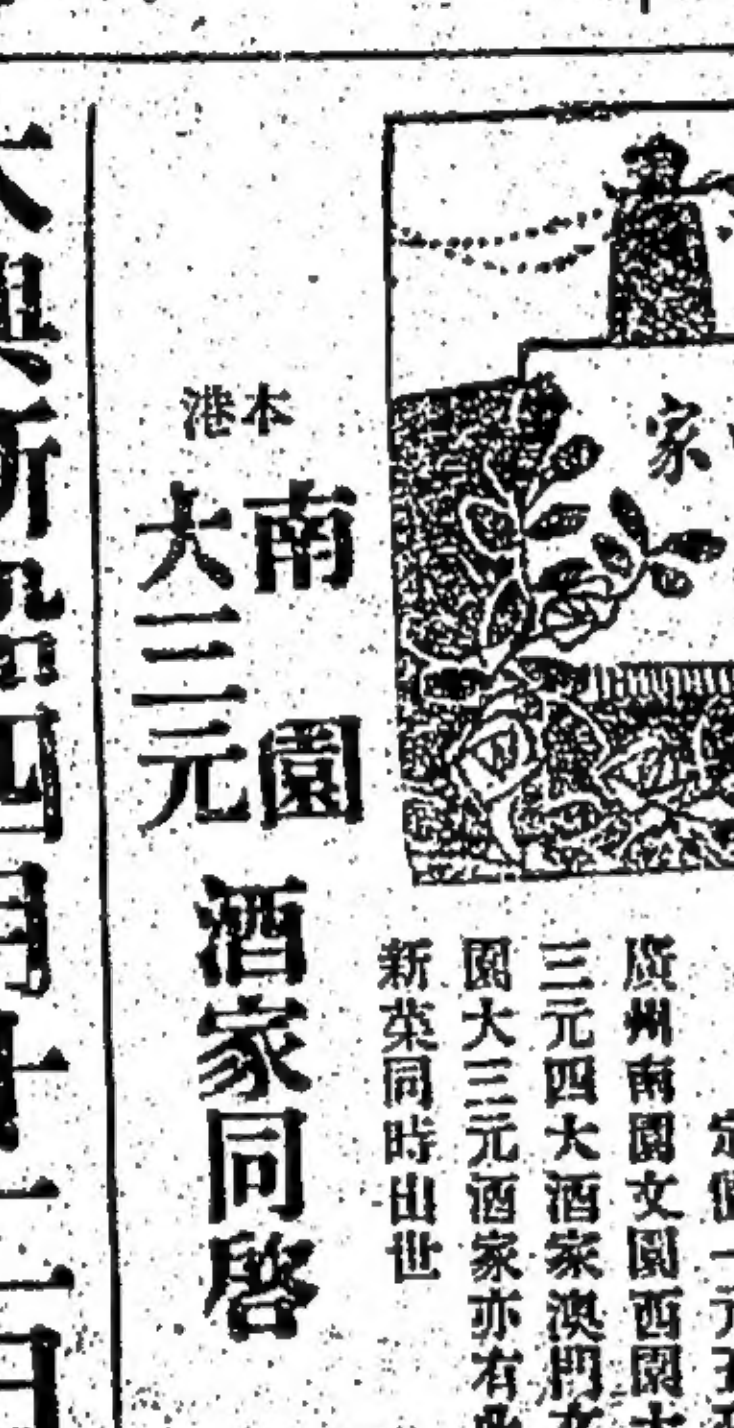 家
定價一元五
廣州南園文園西園大
三元四大酒家澳門
園大三元酒家亦有
新菜同時出世
本港
南園
大三元
酒家同啓
四月十二日